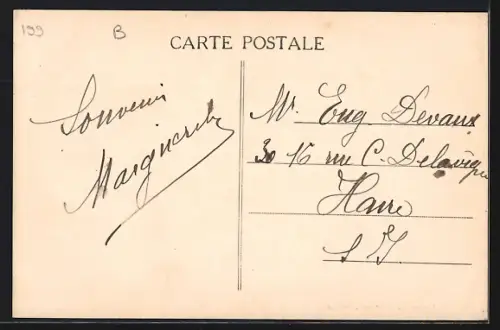 199 B
CARTE POSTALE
Souvenir
Marguerite
Mr Eug. Devaux
30 16 rue C. Delavigne
Havre
S I.